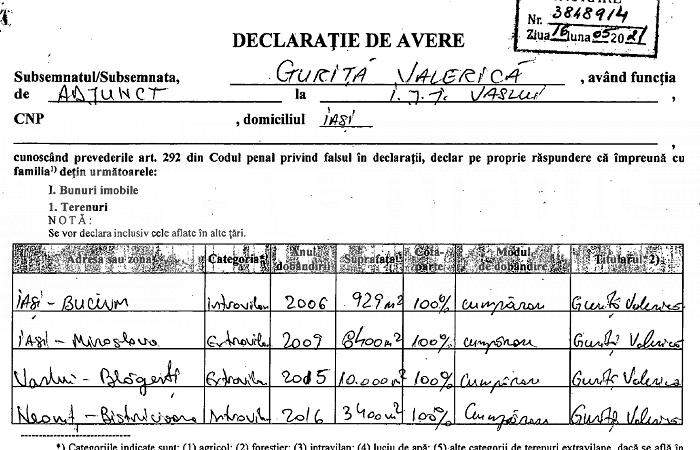 Nr. 3848914
Ziua 16 luna 05 2021
DECLARAŢIE DE AVERE
Subsemnatul/Subsemnata, GURIŢĂ VALERICĂ , având funcţia
de ADJUNCT la I.J.J. VASLUI ,
CNP , domiciliul IAŞI
,
cunoscând prevederile art. 292 din Codul penal privind falsul în declaraţii, declar pe proprie răspundere că împreună cu
familia1) deţin următoarele:
I. Bunuri imobile
1. Terenuri
NOTĂ:
Se vor declara inclusiv cele aflate în alte ţări.
Adresa sau zona Categoria* Anul dobândirii Suprafaţa Cota-parte Modul de dobândire Titularul 2)
IAŞI - BUCIUM Intravilan 2006 929 m2 100% cumpărare Guriţă Valerica
IAŞI - Miroslava Extravilan 2009 8400 m2 100% cumpărare Guriţă Valerica
Vaslui - Blăgeşti Extravilan 2015 10.000 m2 100% Cumpărare Guriţă Valerica
Neamţ - Bistricioara Intravilan 2016 3400 m2 100% Cumpărare Guriţă Valerica
*) Categoriile indicate sunt: (1) agricol; (2) forestier; (3) intravilan; (4) luciu de apă; (5) alte categorii de terenuri extravilane, dacă se află în